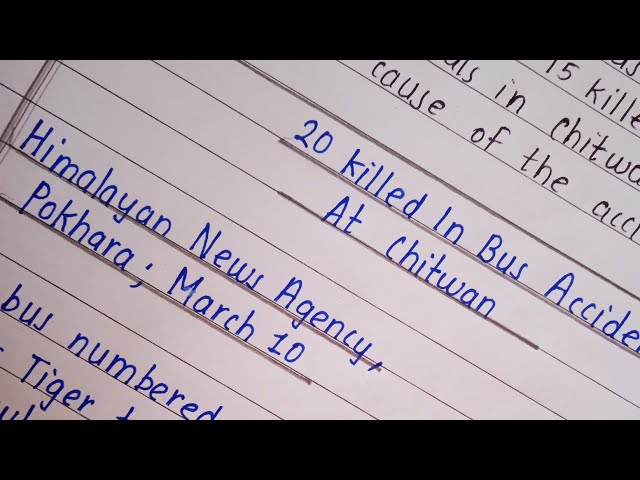 15 kille
in Chitwa
cause of the acci
20 killed In Bus Accide
At Chitwan
Himalayan News Agency,
Pokhara; March 10
bus numbered
Tiger